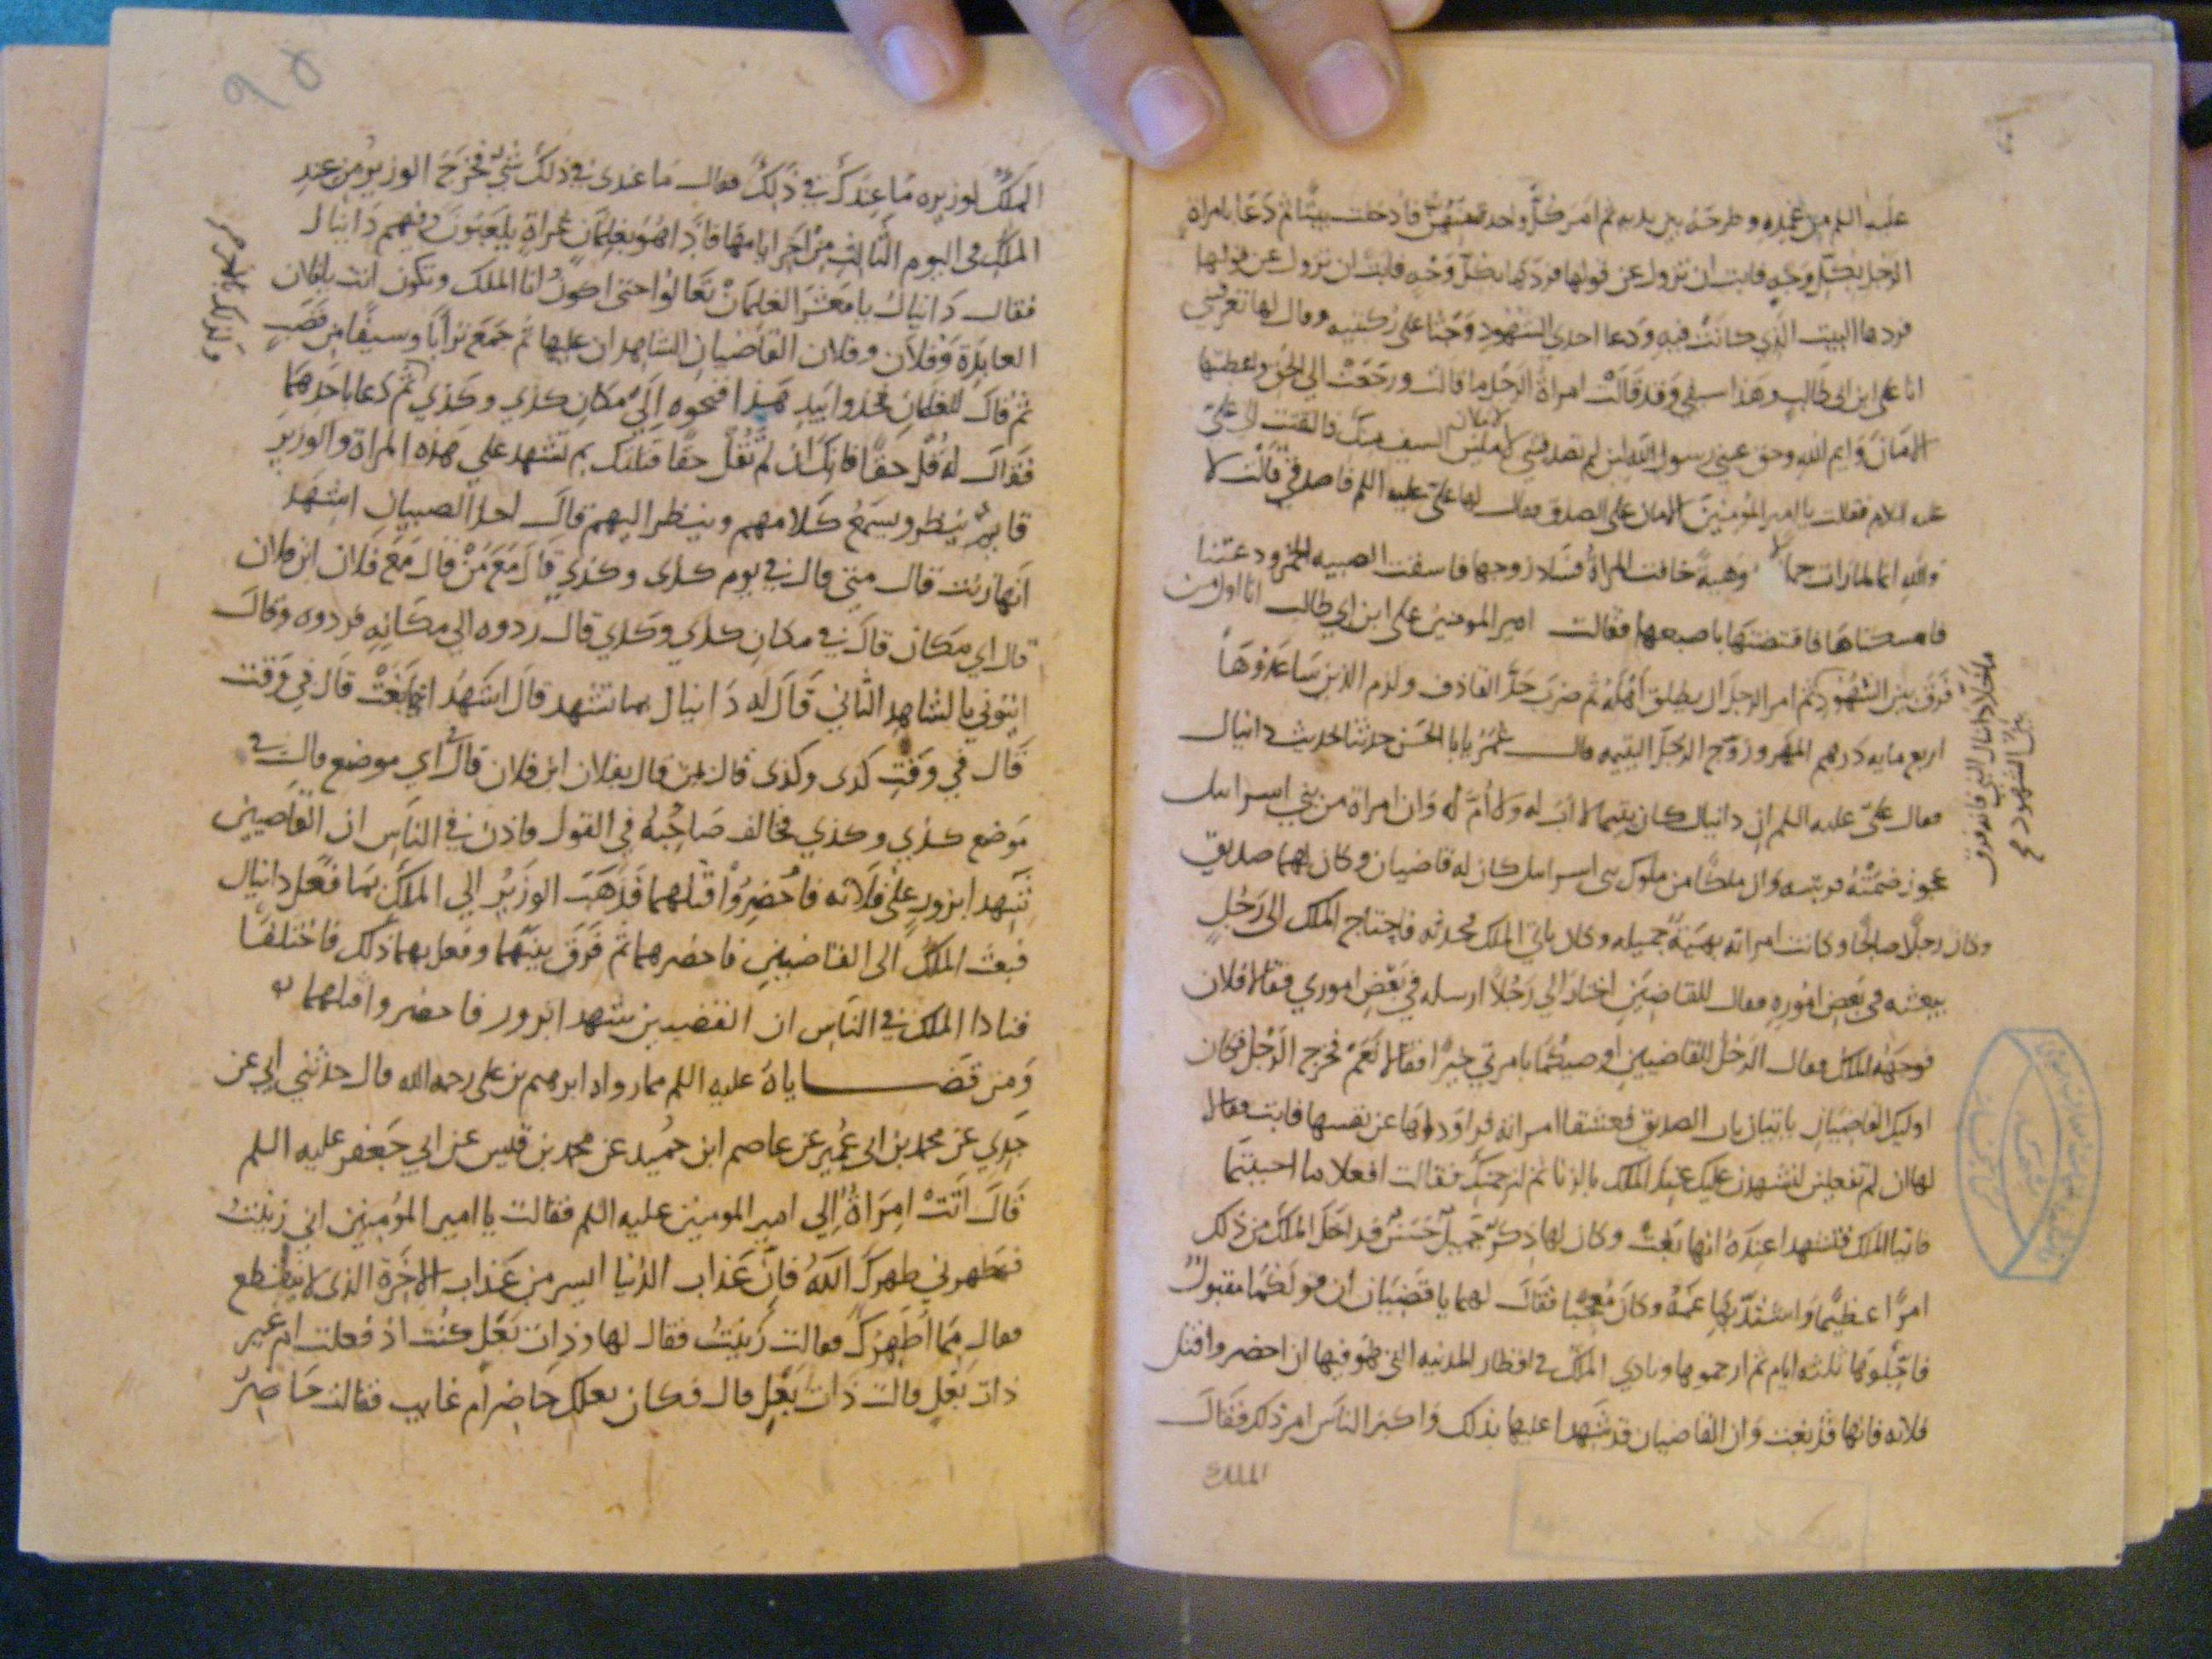 عليه السلم من غمده وطرحه بين يديه ثم امر كل واحدة منهن فادخلت بيتا ثم دعا بامراة
الرجل بكل وجه فابت ان تزول عن قولها فردها
فردها البيت الذي كانت فيه ودعا احدي الشهود وجثا على ركبتيه وقال لها تعرفيني
انا على ابن ابى طالب وهذا سيفي وقد قالت امراة الرجل ما قالت ورجعت الي الحق واعطيتها
الامان وايم الله لين لم تصدقيني لاملين السيف منك فالتفتت الى علي
عليه السلام فقالت يا امير المؤمنين الامان على الصدق فقال لها على عليه السلم فاصدقي قالت لا
والله انها لما رات جمالا وهيبة خافت المراة فساد زوجها فاسقت الصبيه الخمر ودعتنا
فامسكناها فاقتضتها باصبعها فقالت امير المومنين على ابن ابي طالب انا اول من
فرق بين الشهود ثم امر الرجل ان يطلق اهله ثم ضرب حد القاذف ولزم الذين ساعدوها
اربع مايه درهم المهر وزوج الرجل اليتيمه قال عمر يابا الحسن حدثنا بحديث دانيال
فقال على عليه السلم ان دانيال كان يتيما لا اب له ولا ام له وان امراة من بني اسرايل
عجوز ضمته وربته وان ملكا من ملوك بنى اسرايل كان له قاضيان وكان لهما صديق
وكان رجلا صالحا وكانت امراته بهية جميله وكان ياتي الملك فيحدثه فاحتاج الملك الى رجل
يبعثه فى بعض اموره فقال للقاضيين اختارا لي رجلا ارسله في بعض اموري فقالا فلان
فوجهه الملك وقال الرجل للقاضيين اوصيكما بامرتي خيرا فقالا نعم فخرج الرجل فكان
اوليك القاضيان ياتيان باب الصديق فعشقا امراته فراوداها عن نفسها فابت فقالا
لها ان لم تفعلين لنشهدن عليك عند الملك بالزنا ثم لنرجمنك فقالت افعلا ما احببتما
فاتيا الملك فشهدا عنده انها بغت وكان لها ذكر جميل حسن فداخل الملك من ذلك
امرا عظيما واشتد بها غمه وكان معجبا فقال لهما يا قضيان ان قولكما مقبول
فاجلوها ثلثه ايام ثم ارجموها ونادي الملك فى اقطار المدنيه التي هو فيها ان احضروا قتل
فلانه فانها قد بغت وان القاضيان قد شهدا عليها بذلك واكبر الناس امر ذلك فقال
الملك
الملك لوزيره ما عندك في ذلك فقال ما عندى في ذلك شي فخرج الوزير من عند
الملك فى اليوم الثالث من اخر ايامها فاذا هو بغلمان عراة يلعبون وفيهم دانيال
فقال دانيال يا معشر الغلمان تعالوا حتى اكون انا الملك وتكون انت يا فلان
العابدة وفلان وفلان القاضيان الشاهدان عليها ثم جمع ترابا وسيفا من قصب
ثم قال للغلمان خذوا بيد هذا فنحوه الي مكان كذي وكذي ثم دعا باحدهما
فقال له قل حقا فانك ان لم تقل حقا قتلتك بم تشهد على هذه المراة والوزير
قايم ينظر ويسمع كلامهم وينظر اليهم قال احد الصبيان اشهد
انها زنت قال متى قال في يوم كذى وكذي قال مع من قال مع فلان ابن فلان
قال اي مكان قال في مكان كذي وكذي قال ردوه الي مكانه فردوه وقال
ايتوني بالشاهد الثاني قال له دانيال بما تشهد قال اشهد انها بغت قال في وقت
قال في وقت كذى وكذى قال بمن قال بفلان ابن فلان قال في اي موضع قال في
موضع كذي وكذي فخالف صاحبه في القول فاذن في الناس ان القاضيين
شهدا بزور على فلانه فاحضروا قتلهما فذهب الوزير الي الملك بما فعل دانيال
فبعث الملك الى القاضيين فاحضرهما ثم فرق بينهما وفعل بهما ذلك فاختلفا
فنادا الملك في الناس ان شهدا بزور فاحضروا قتلهما
ومن قضاياه عليه السلم مما رواه ابرهيم بن على رحمه الله قال حدثني ابي عن
جدي عن محمد بن ابي عمير عن عاصم ابن حميد عن محمد بن قيس عن ابي جعفر عليه السلم
قال اتت امراة الي امير المومنين عليه السلم فقالت يا امير المؤمنين اني زنيت
فطهرني طهرك الله فان عذاب الدنيا ايسر من عذاب الاخرة الذى لا ينقطع
فقال مما اطهرك فقالت زنيت فقال لها وذات بعل كنت اذ فعلت ام غير
ذات بعل قالت ذات بعل قال فكان بعلك حاضرا ام غايب فقالت حاضر